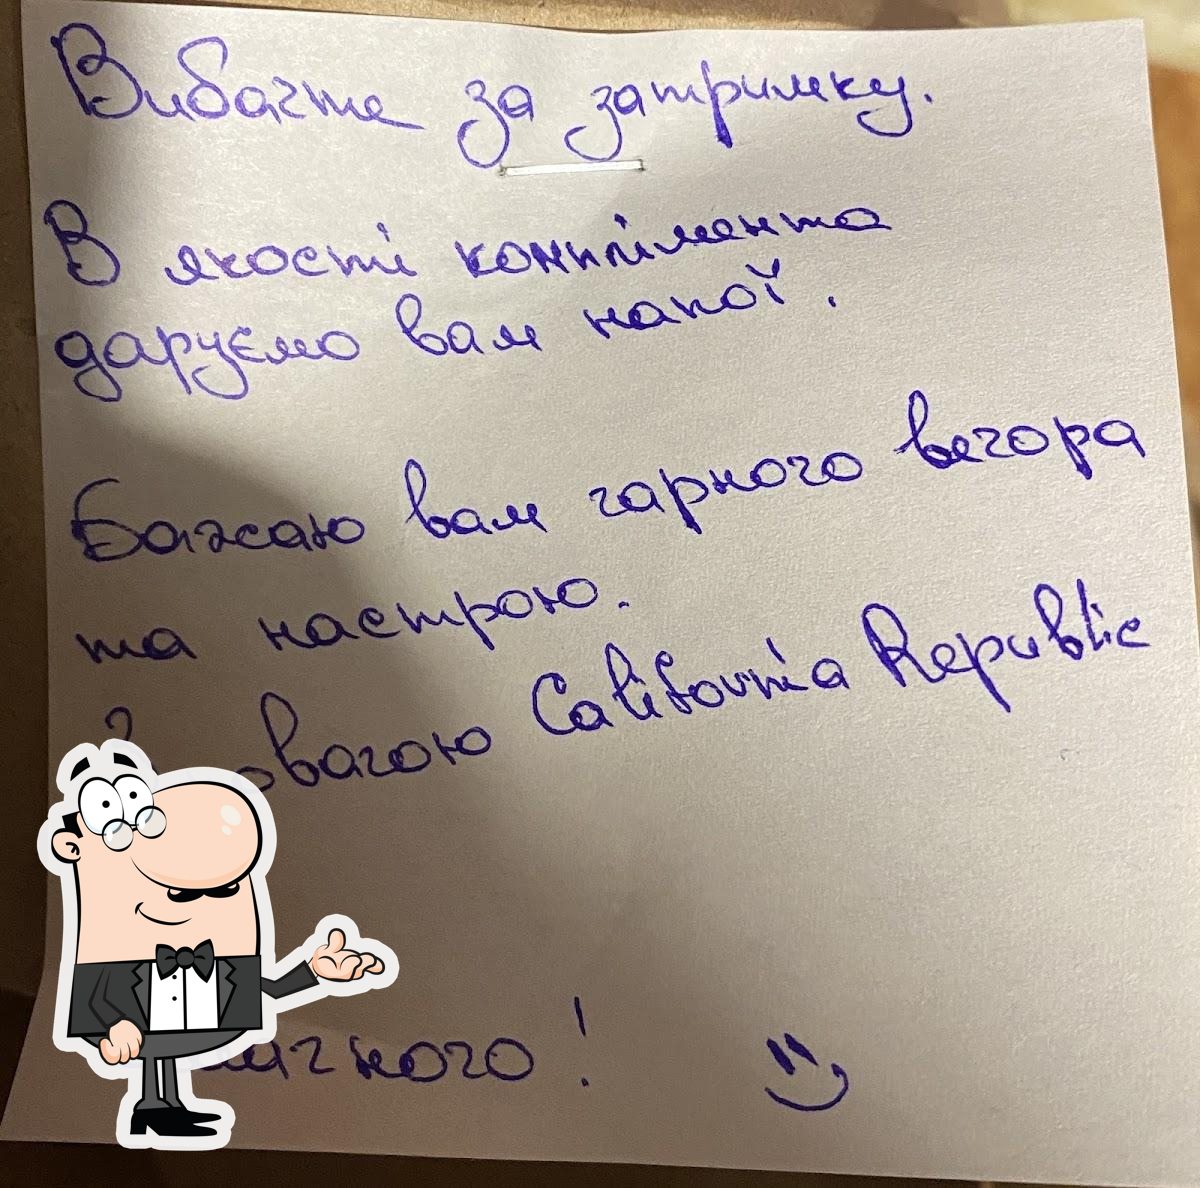 Вибачте за затримку.
В якості комплімента
даруємо вам напої.
Бажаю вам гарного вечора
та настрою.
California Republic
!